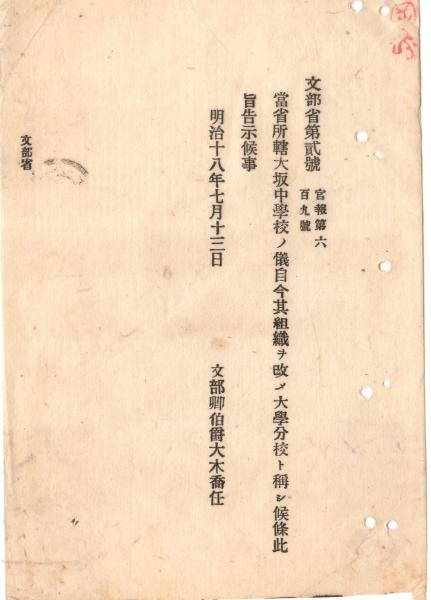 文部省第貳號
官報第六
百九號
當省所轄大坂中學校ノ儀自今其組織ヲ改メ大學分校ト稱シ候條此
旨告示候事
明治十八年七月十三日
文部卿伯爵大木喬任
文部省